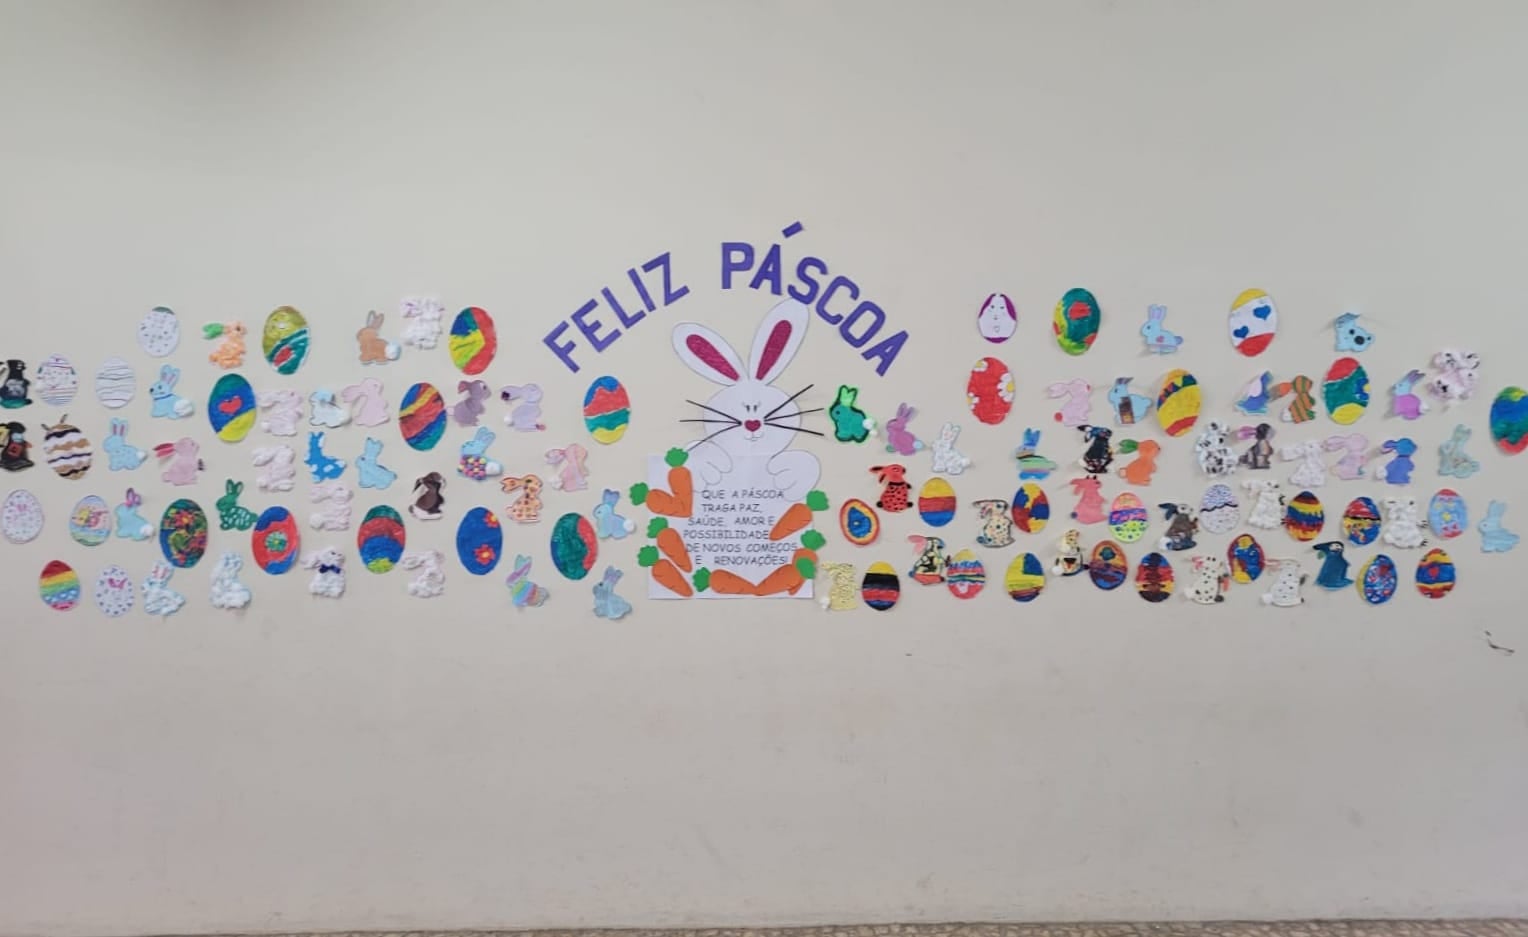 FELIZ PÁSCOA
QUE A PÁSCOA
TRAGA PAZ,
SAÚDE, AMOR E
POSSIBILIDADE
DE NOVOS COMEÇOS
E RENOVAÇÕES!